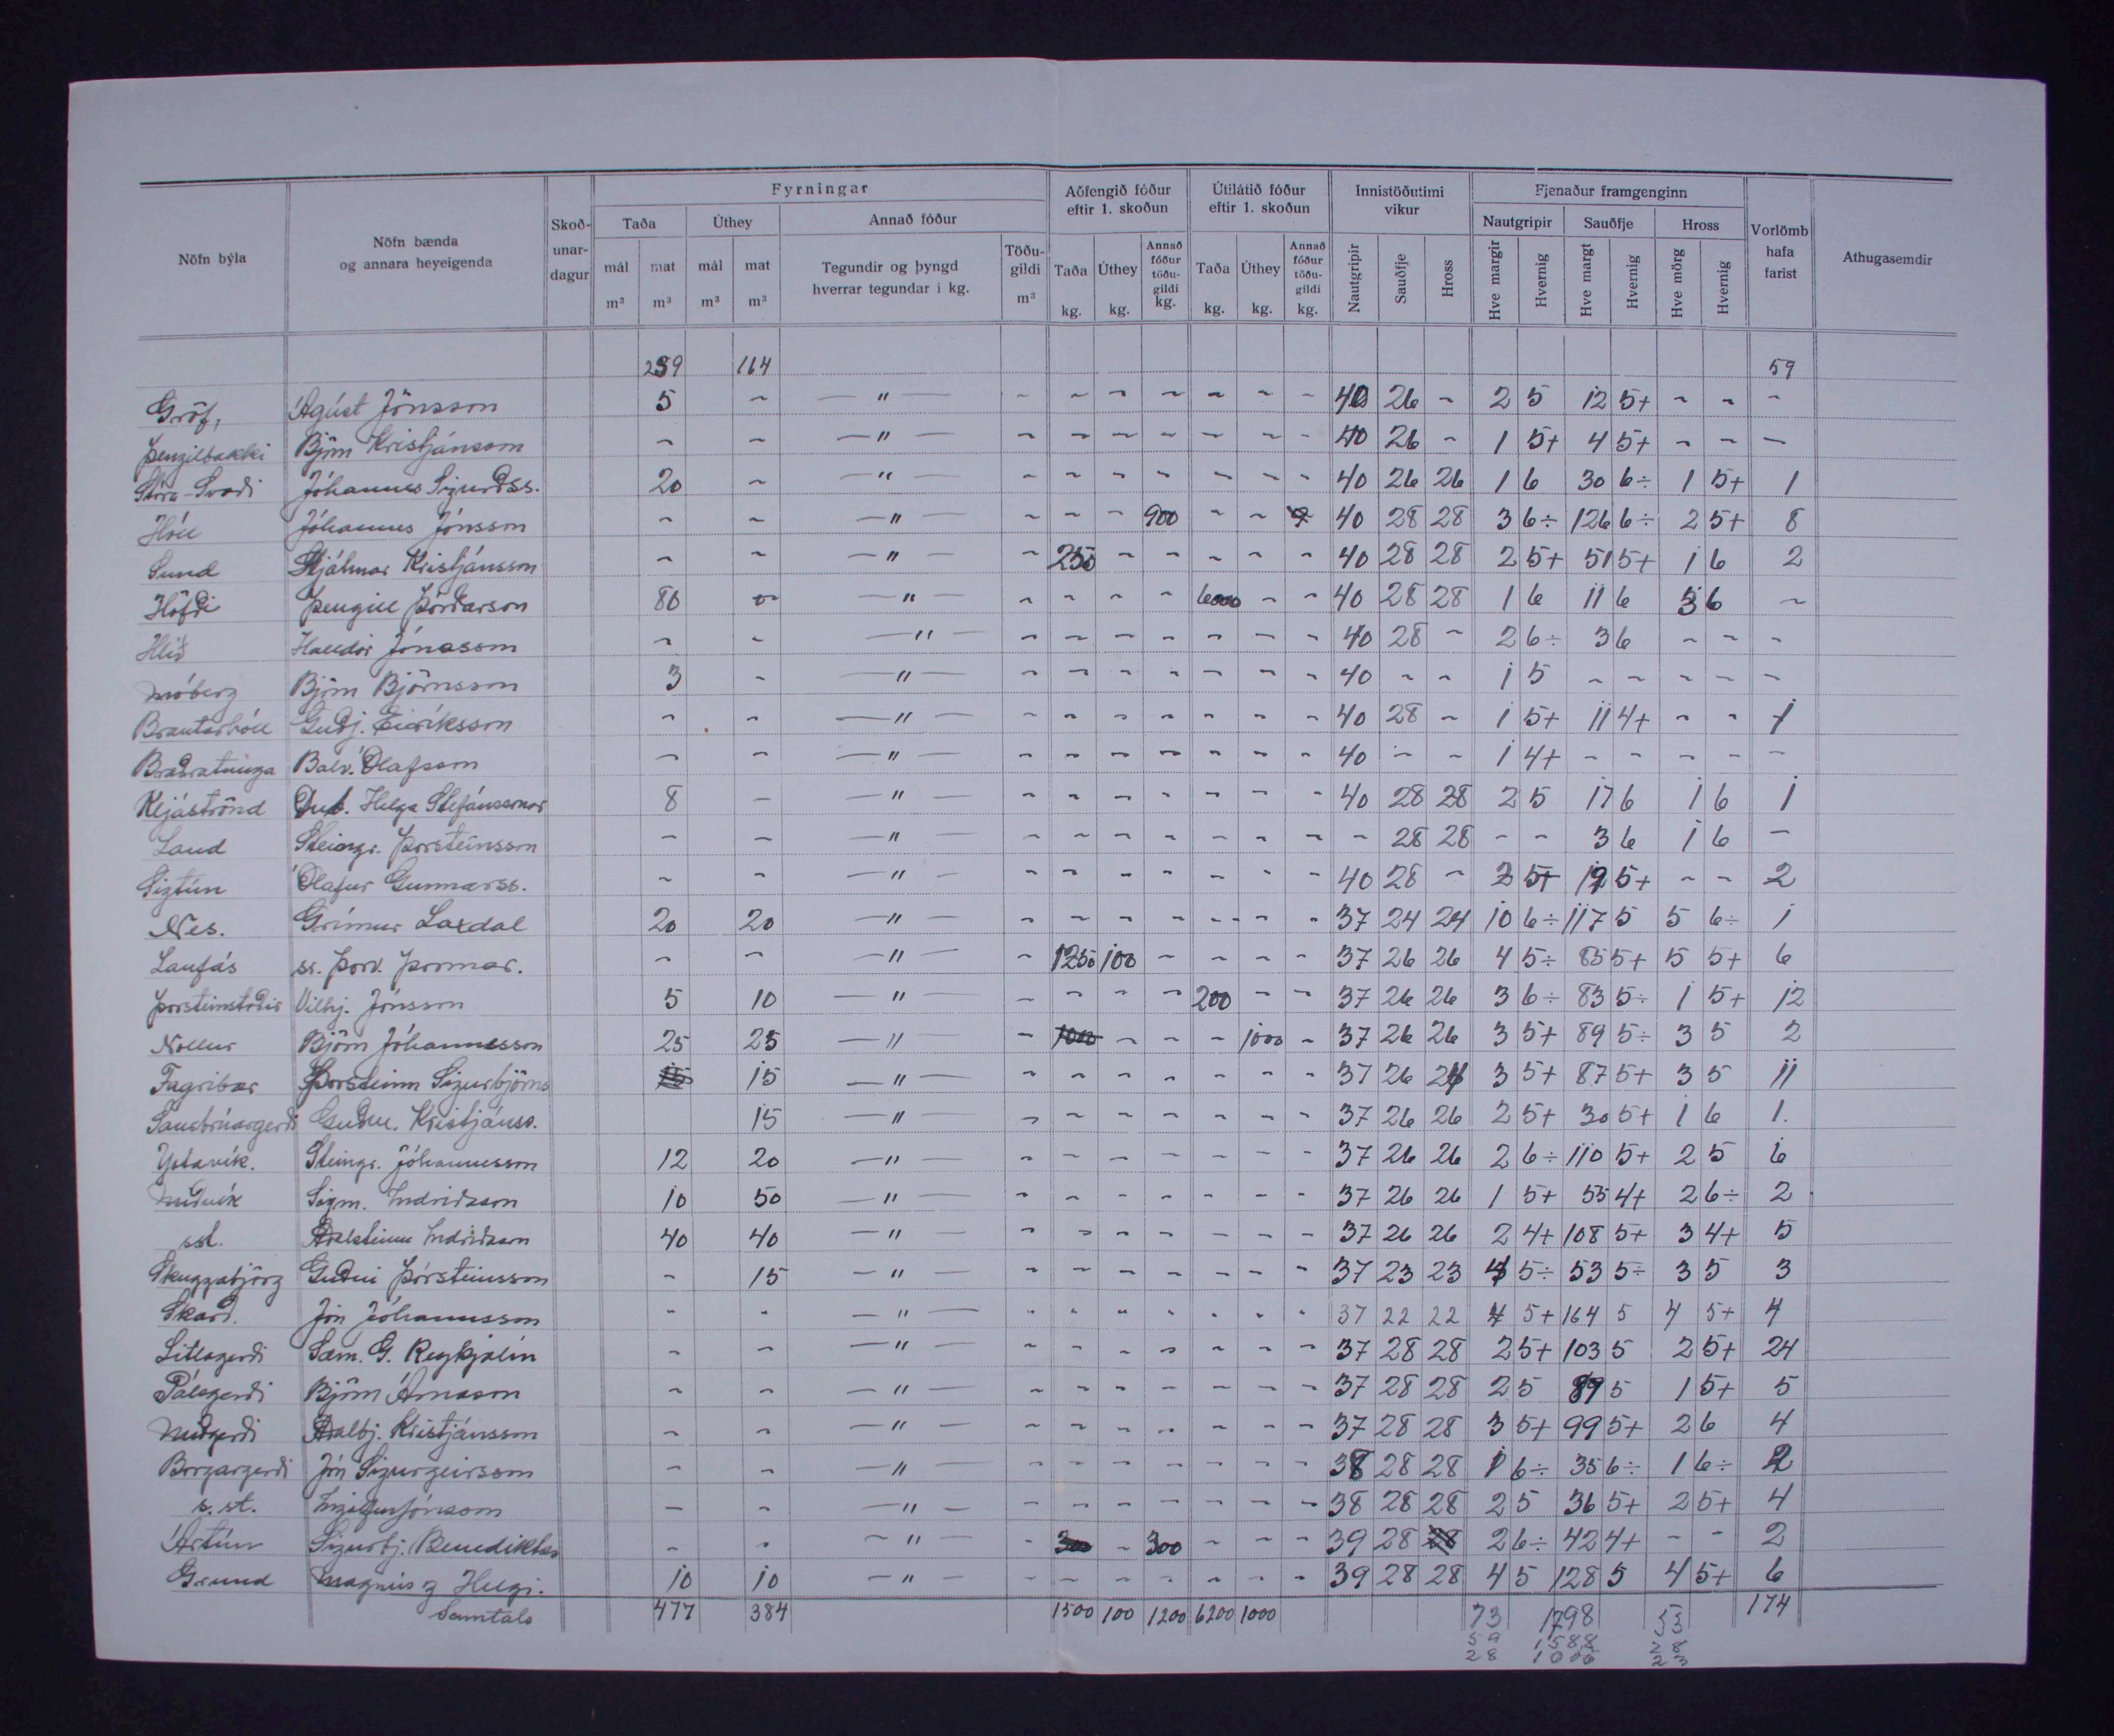 Fyrningar Aðfengið fóður eftir 1. skoðun Útilátið fóður eftir 1. skoðun Innistöðutími vikur Fjenaður framgenginn
Nöfn býla Nöfn bænda og annara heyeigenda Skoðunar-dagur Taða Úthey Annað fóður Nautgripir Sauðfje Hross Vorlömb hafa farist Athugasemdir
mál m³ mat m³ mál m³ mat m³ Tegundir og þyngd hverrar tegundar í kg. Töðu-gildi m³ Taða kg. Úthey kg. Annað fóður töðu-gildi kg. Taða kg. Úthey kg. Annað fóður töðu-gildi kg. Nautgripir Sauðfje Hross Hve margir Hvernig Hve margt Hvernig Hve mörg Hvernig
239 164 59
Gröf, Ágúst Jónsson 5 ~ —"— ~ ~ ~ ~ ~ ~ ~ 40 26 ~ 2 5 12 5+ ~ ~ ~
Þengilbakki Björn Kristjánsson ~ ~ —"— ~ ~ ~ ~ ~ ~ ~ 40 26 ~ 1 5+ 4 5+ ~ ~ ~
Stóra-Svæði Jóhannes Sigurðss. 20 ~ —"— ~ ~ ~ ~ ~ ~ ~ 40 26 26 1 6 30 6÷ 1 5+ 1
Hóll Jóhannes Jónsson ~ ~ —"— ~ ~ ~ 900 ~ ~ 40 28 28 3 6÷ 126 6÷ 2 5+ 8
Sund Hjálmar Kristjánsson ~ ~ —"— ~ 250 ~ ~ ~ ~ ~ 40 28 28 2 5+ 51 5+ 1 6 2
Höfði Þengill Þórðarson 80 ~ —"— ~ ~ ~ ~ 6000 ~ ~ 40 28 28 1 6 11 6 3 6 ~
Hlíð Halldór Jónasson ~ ~ —"— ~ ~ ~ ~ ~ ~ ~ 40 28 ~ 2 6÷ 3 6 ~ ~ ~
Móberg Björn Björnsson 3 ~ —"— ~ ~ ~ ~ ~ ~ ~ 40 ~ ~ 1 5 ~ ~ ~ ~ ~
Brautarhóll Guðj. Eiríksson ~ ~ —"— ~ ~ ~ ~ ~ ~ ~ 40 28 ~ 1 5+ 11 4+ ~ ~ 1
Bræðratunga Balv. Ólafsson ~ ~ —"— ~ ~ ~ ~ ~ ~ ~ 40 ~ ~ 1 4+ ~ ~ ~ ~ ~
Kljáströnd Helga Stefánssonar 8 ~ —"— ~ ~ ~ ~ ~ ~ ~ 40 28 28 2 5 17 6 1 6 1
Land Steingr. Þorsteinsson ~ ~ —"— ~ ~ ~ ~ ~ ~ ~ ~ 28 28 ~ ~ 3 6 1 6 ~
Sigtún Ólafur Gunnarss. ~ ~ —"— ~ ~ ~ ~ ~ ~ ~ 40 28 ~ 2 5+ 12 5+ ~ ~ 2
Nes. Grímur Laxdal 20 20 —"— ~ ~ ~ ~ ~ ~ ~ 37 24 24 10 6÷ 117 5 5 6÷ 1
Laufás sr. Þorv. Þormar. ~ ~ —"— ~ 1250 100 ~ ~ ~ ~ 37 26 26 4 5÷ 85 5+ 5 5+ 6
Þorsteinstaðir Vilhj. Jónsson 5 10 —"— ~ ~ ~ ~ 200 ~ ~ 37 26 26 3 6÷ 83 5÷ 1 5+ 12
Nollur Björn Jóhannesson 25 25 —"— ~ 1000 ~ ~ ~ 1000 ~ 37 26 26 3 5+ 89 5÷ 3 5 2
Fagribær Þorsteinn Sigurbjörns 15 15 —"— ~ ~ ~ ~ ~ ~ ~ 37 26 26 3 5+ 87 5+ 3 5 11
Guðm. Kristjánss. 15 —"— ~ ~ ~ ~ ~ ~ ~ 37 26 26 2 5+ 30 5+ 1 6 1.
Ystavík. Steingr. Jóhannesson 12 20 —"— ~ ~ ~ ~ ~ ~ ~ 37 26 26 2 6÷ 110 5+ 2 5 6
Miðvík Sigm. Indriðason 10 50 —"— ~ ~ ~ ~ ~ ~ ~ 37 26 26 1 5+ 55 4+ 2 6÷ 2
sst. Aðalsteinn Indriðason 40 40 —"— ~ ~ ~ ~ ~ ~ ~ 37 26 26 2 4+ 108 5+ 3 4+ 5
Skuggabjörg Guðni Þórsteinsson ~ 15 —"— ~ ~ ~ ~ ~ ~ ~ 37 23 23 4 5÷ 53 5÷ 3 5 3
Skarð. Jón Jóhannsson ~ ~ —"— ~ ~ ~ ~ ~ ~ ~ 37 22 22 4 5+ 164 5 4 5+ 4
Litlagerði Sæm. G. Reykjalín ~ ~ —"— ~ ~ ~ ~ ~ ~ ~ 37 28 28 2 5+ 103 5 2 5+ 24
Pálsgerði Björn Árnason ~ ~ —"— ~ ~ ~ ~ ~ ~ ~ 37 28 28 2 5 89 5 1 5+ 5
Miðgerði Aðalbj. Kristjánsson ~ ~ —"— ~ ~ ~ ~ ~ ~ ~ 37 28 28 3 5+ 99 5+ 2 6 4
Borgargerði Jón Sigurgeirsson ~ ~ —"— ~ ~ ~ ~ ~ ~ ~ 38 28 28 1 6÷ 35 6÷ 1 6÷ 2
s.st. Ingólfur Jónsson ~ ~ —"— ~ ~ ~ ~ ~ ~ ~ 38 28 28 2 5 36 5+ 2 5+ 4
Ártún Sigurbj. Benediktss ~ ~ —"— ~ 300 ~ 300 ~ ~ ~ 39 28 28 2 6÷ 42 4+ ~ ~ 2
Grund Magnús og Helgi. 10 10 —"— ~ ~ ~ ~ ~ ~ ~ 39 28 28 4 5 128 5 4 5+ 6
Samtals 477 384 1500 100 1200 6200 1000 73 1798 53 174
59 1588 28
28 1006 23